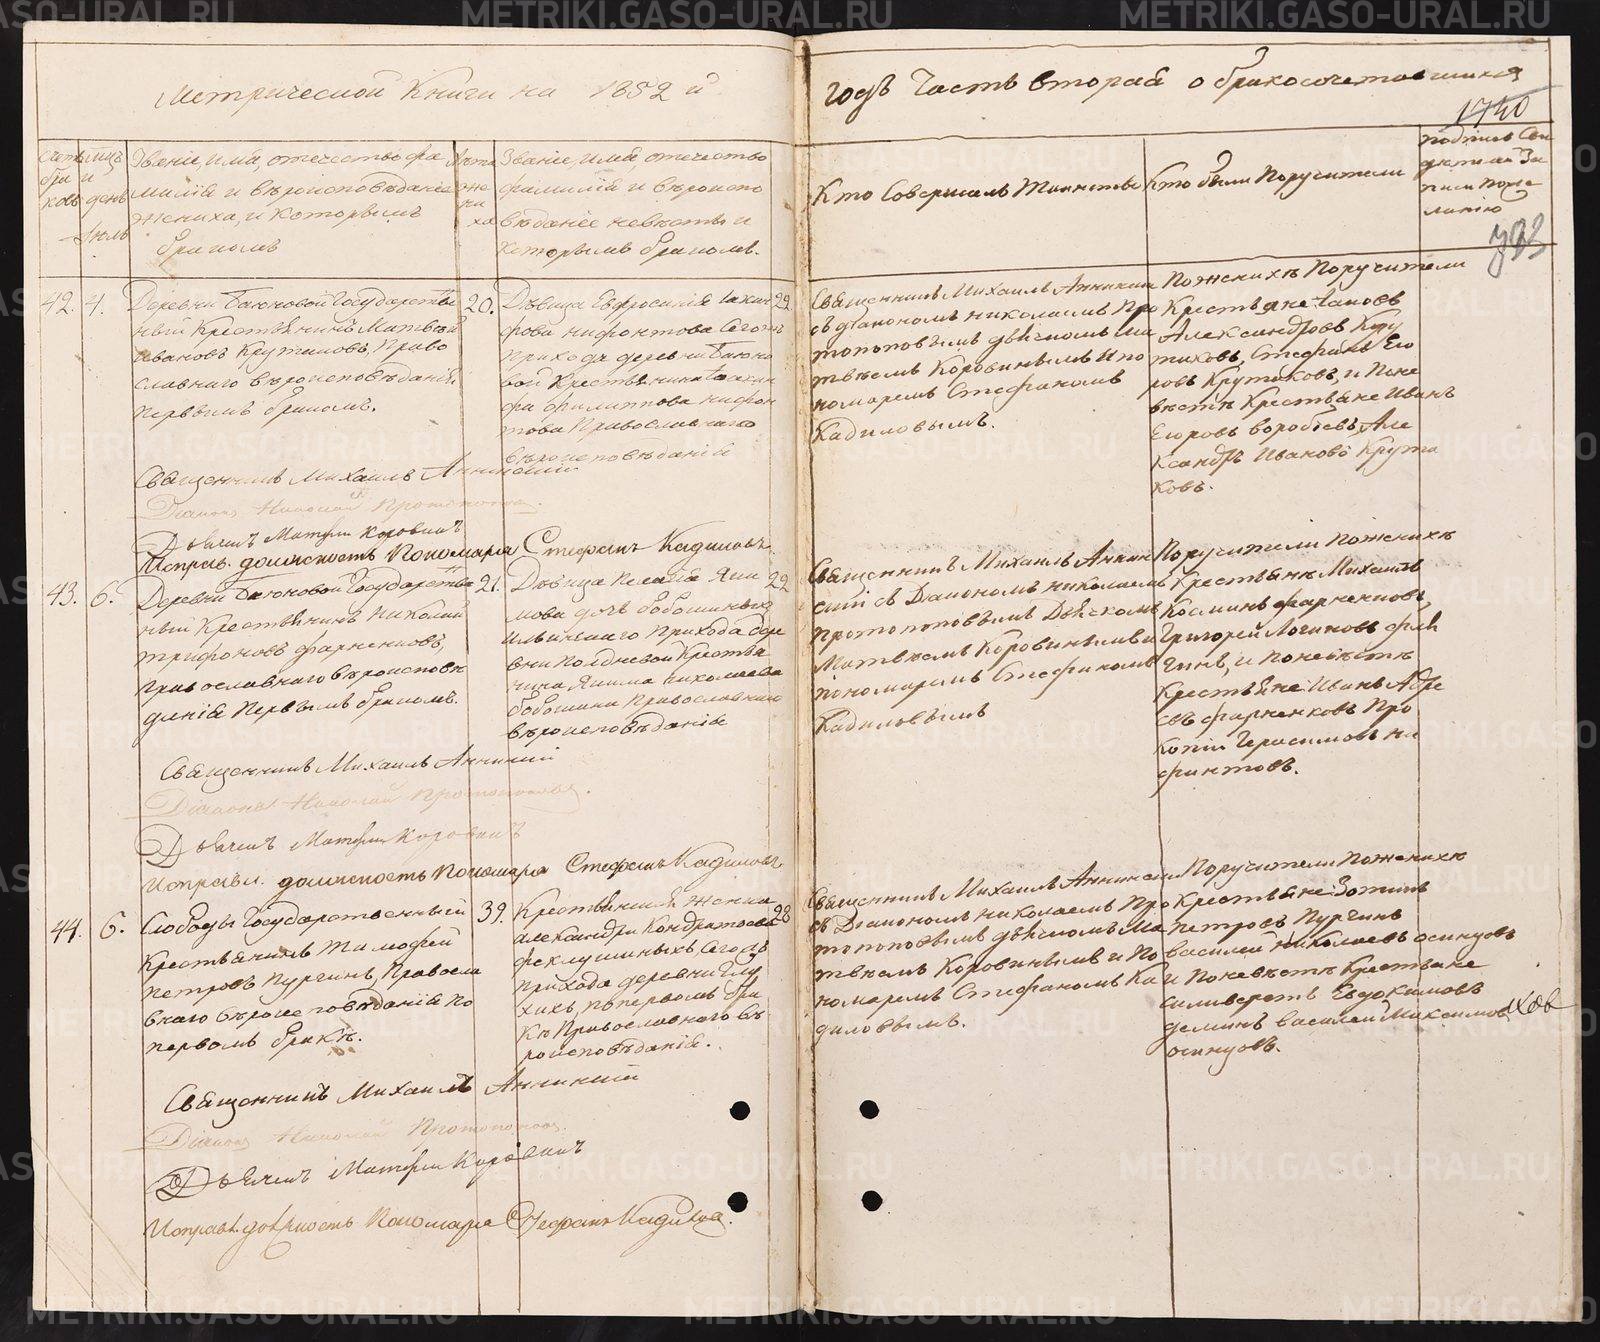 Метрической Книги на 1852 й
годъ Часть вторая о бракосочетавшихся
1740
Счетъ браковъ
мцъ и день
Июль
Званіе, имя, отечество фа
милія и вѣроисповѣданіе
жениха, и которымъ
бракомъ
Лѣта
же
ни
ха
Званіе, имя, отечество
фамилія и вѣроиспо
вѣданіе невѣсты и
которымъ бракомъ.
Кто Совершалъ Таинство
Кто были Поручители
подпись Сви
дѣтелей За
писи поже
ланію
42. 4.
Деревни Баюновой Государстве
ный Крестьянинъ Матвѣй
Ивановъ Крутиковъ, Право
славнаго вѣроисповѣданія
первымъ бракомъ.
20.
Дѣвица Евфросинія Іакин
фова Нифонтова Сегожъ
Прихода деревни Баюно
вой Крестьянина Іакин
фа Филиппова Нифон
това Православнаго
вѣроисповѣданія
22
Священникъ Михаилъ Аннинск
съ діакономъ Николаемъ Про
топоповымъ дьячкомъ Ма
твѣемъ Коровинымъ и по
номаремъ Стефаномъ
Кадиловымъ.
Пожених Поручители
Крестьяне Іаковъ
Александровъ Кру
тиковъ, Стефанъ Его
ровъ Крутиковъ, и Поне
вѣстѣ Крестьяне Иванъ
Егоровъ Воробьевъ, Але
ксандръ Ивановъ Крути
ковъ.
Священникъ Михаилъ Аннинскій
Діаконъ Николай Протопоповъ.
Дьячекъ Матвѣй Коровинъ
Исправ. должность Пономаря Стефанъ Кадиловъ.
43. 6.
Деревни Баюновой Государстве
ный Крестьянинъ Николай
Трифоновъ Фарненковъ,
православнаго вѣроисповѣ
данія Первымъ бракомъ.
21.
Дѣвица Пелагія Яки
мова дочь Бобошиныхъ
Ильинскаго Прихода дере
вни Полдневой Крестья
нина Якима Николаева
Бобошина Православнаго
вѣроисповѣданія
22
Священникъ Михаилъ Аннин
скій съ Діакономъ Николаемъ
Протопоповымъ Дьячкомъ
Матвѣемъ Коровинымъ и
пономаремъ Стефаномъ
Кадиловымъ
Поручители Пожених
Крестьяне Михаилъ
Косминъ Фарненковъ,
Григорей Логиновъ
и Поневѣстѣ
Крестьяне Иванъ
Фарненковъ Про
копій Герасимовъ Ни
фонтовъ.
Священникъ Михаилъ Аннинскій
Діаконъ Николай Протопоповъ.
Дьячекъ Матвѣй Коровинъ
Исправл. должность Пономаря Стефанъ Кадиловъ
44. 6.
Слободы Государственный
Крестьянинъ Тимофей
Петровъ Пургинъ, Правосла
внаго вѣроисповѣданія по
первомъ бракѣ.
39.
Крестьянская Женка
Александра Кондратьева
Феклушиныхъ, Сегожъ
прихода деревни Глу
хихъ, по первомъ бра
кѣ Православнаго вѣ
роисповѣданія.
28
Священникъ Михаилъ Аннинскій
съ Діакономъ Николаемъ Про
топоповымъ дьячкомъ Ма
твѣемъ Коровинымъ и По
номаремъ Стефаномъ Ка
диловымъ.
Поручители Пожених
Крестьяне: Зотикъ
Петровъ Пургинъ
Василей Николаевъ Осинцовъ
и Поневѣстѣ Крестьяне
Силиверстъ Евдокимовъ
Деминъ Василей Максимов
осинцовъ.
Священникъ Михаилъ Аннинскій
Діаконъ Николай Протопоповъ.
Дьячекъ Матвѣй Коровинъ
Исправл. должность Пономаря Стефанъ Кадиловъ.
METRIKI.GASO-URAL.RU